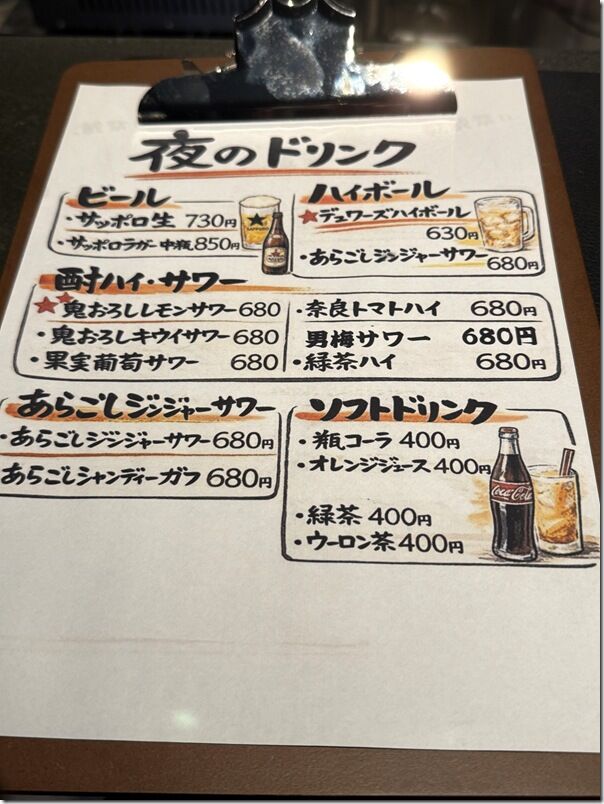 夜のドリンク
ビール
・サッポロ生 730円
・サッポロラガー中瓶850円
ハイボール
★デュワーズハイボール
630円
・あらごしジンジャーサワー
680円
酎ハイ・サワー
★★鬼おろしレモンサワー680
・鬼おろしキウイサワー 680
・果実葡萄サワー 680
・奈良トマトハイ 680円
男梅サワー 680円
・緑茶ハイ 680円
あらごしジンジャーサワー
・あらごしジンジャーサワー680円
あらごしシャンディーガフ 680円
ソフトドリンク
・瓶コーラ 400円
・オレンジジュース 400円
・緑茶 400円
・ウーロン茶 400円
Coca-Cola